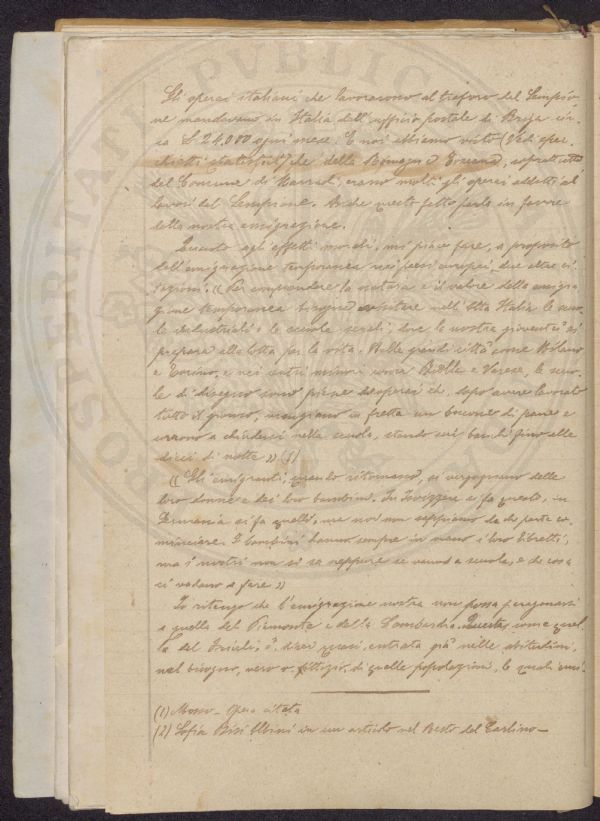 Gli operai italiani che lavoravano al traforo del Sempio-
ne mandavano in Italia dall'ufficio postale di Briga cir-
ca £ 24.000 ogni mese. E noi abbiamo visto (Vedi spec-
chietti statistici) che della Romagna Toscana, sopratutto
del Comune di Marradi, erano molti gli operai addetti ai
lavori del Sempione. Anche questo fatto parla in favore
della nostra emigrazione.
Quanto agli effetti morali, mi piace fare, a proposito
dell'emigrazione temporanea nei paesi europei, due altre ci-
tazioni. « Per comprendere la natura e il valore della emigra-
zione temporanea bisogna visitare nell'Alta Italia le scuo-
le industriali e le scuole serali, dove la nostra gioventù si
prepara alla lotta per la vita. Nelle grandi città come Milano
e Torino, e nei centri minori come Biella e Varese, le scuo-
le di disegno sono piene di operai che, dopo avere lavorato
tutto il giorno, mangiano in fretta un boccone di pane e
corrono a chiudersi nella scuola, stando sui banchi fino alle
dieci di notte » (1)
« Gli emigranti, quando ritornano, si vergognano delle
loro donne e dei loro bambini. In Svizzera si fa questo, in
Germania si fa quello, ma noi non sappiamo da che parte co-
minciare. I bambini hanno sempre in mano i loro libretti,
ma i nostri non si sa neppure se vanno a scuola, e che cosa
ci vadano a fare »
Io ritengo che l'emigrazione nostra non possa paragonarsi
a quella del Piemonte e della Lombardia. Questa, come quel-
la del Friuli, è, direi quasi, entrata già nelle abitudini,
nel bisogno, vero o fittizio, di quelle popolazioni, le quali
(1) Mosso - Opera citata
(2) Sofia Bisi Albini in un articolo nel Resto del Carlino -
PVBLIC